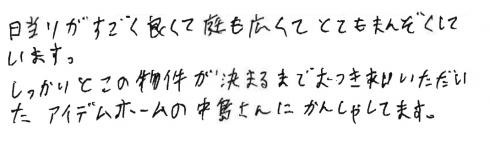 日当りがすごく良くて庭も広くてとてもまんぞくして
います。
しっかりとこの物件が決まるまでおつき合いいただい
た アイデムホームの中島さんにかんしゃしてます。